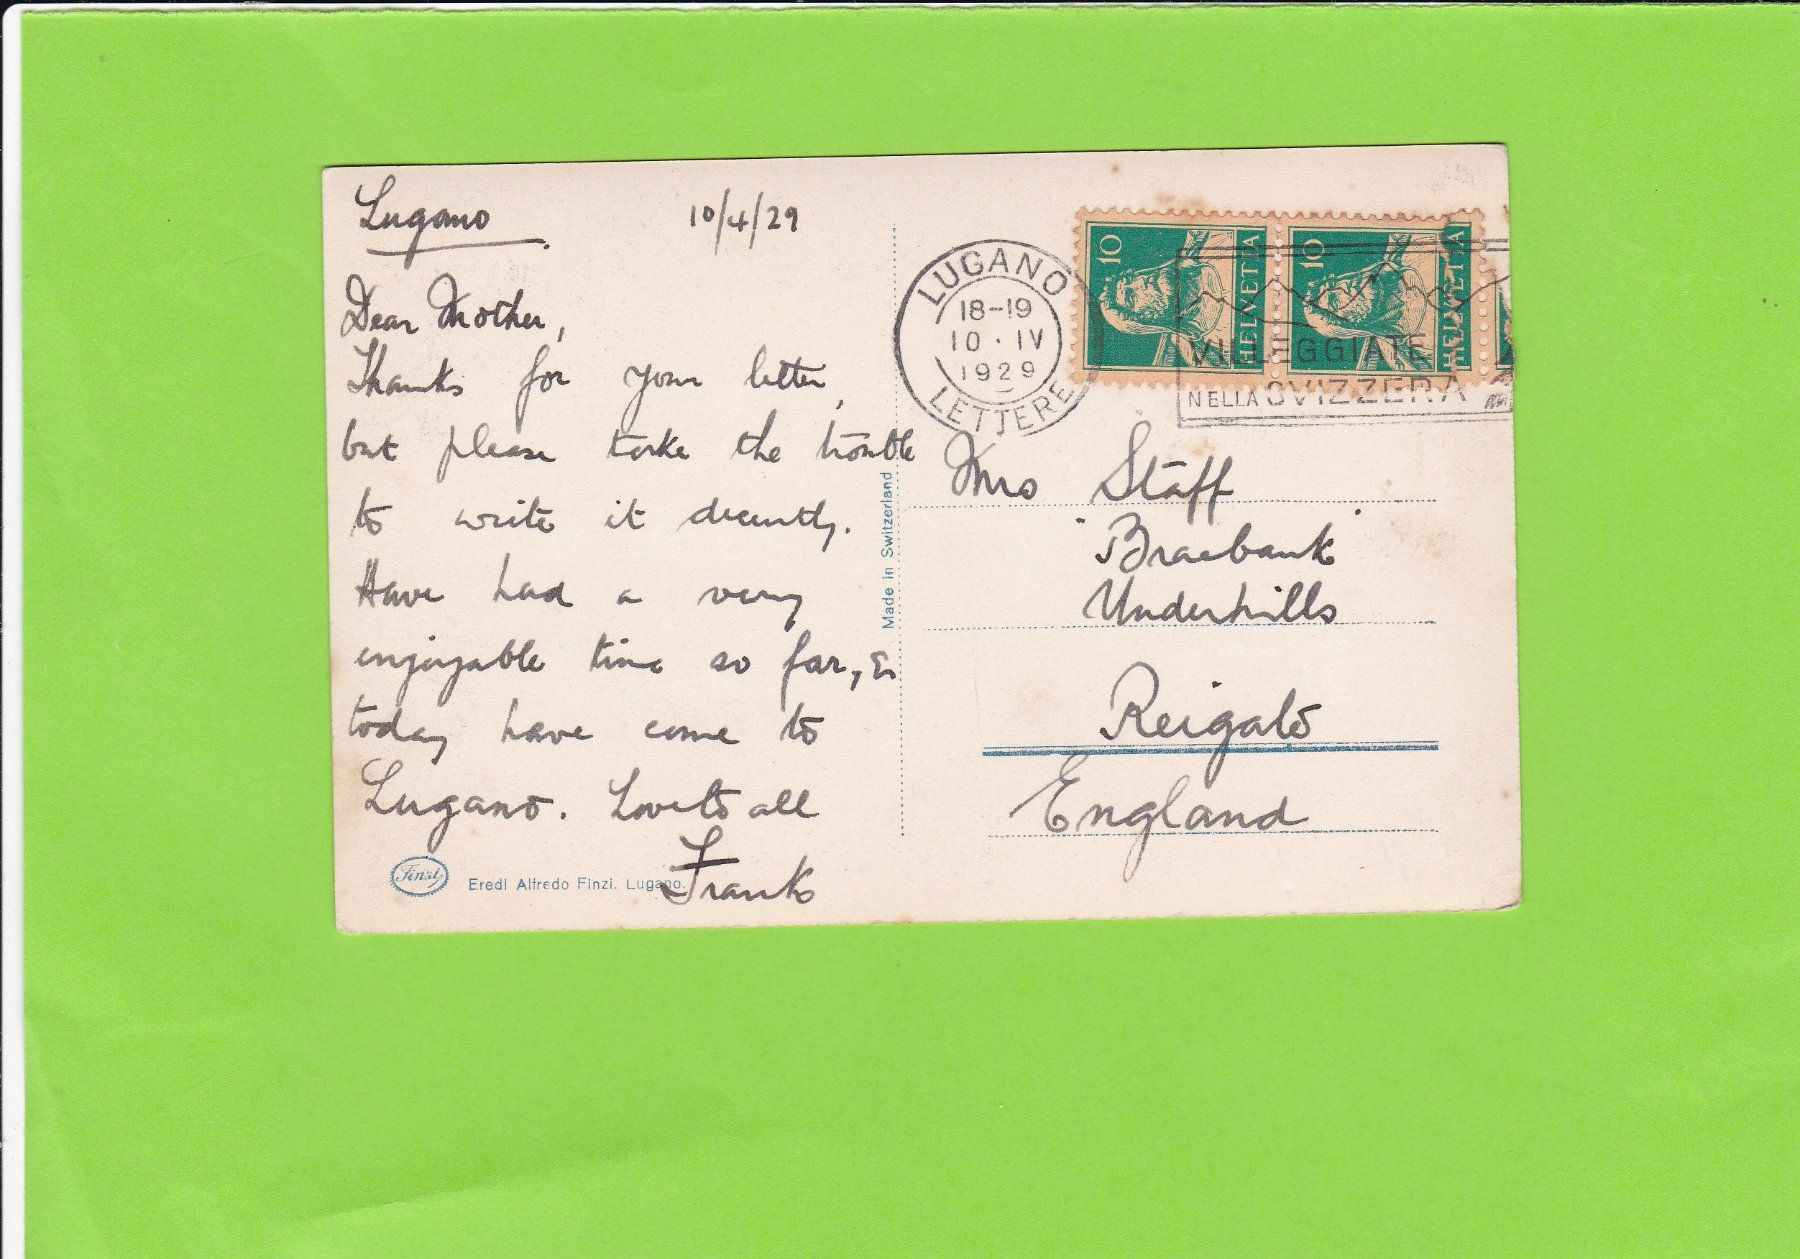 Lugano 10/4/29
Dear Mother,
Thanks for your letter,
but please take the trouble
to write it decently.
Have had a very
enjoyable time so far, &
today have come to
Lugano. Love to all
Frank
Finzi
Eredi Alfredo Finzi. Lugano.
Made in Switzerland
LUGANO
18-19
10·IV
1929
LETTERE
10 HELVETIA
10 HELVETIA
VILLEGGIATE
NELLA SVIZZERA
Mrs Staff
"Braebank"
Underhills
Reigate
England